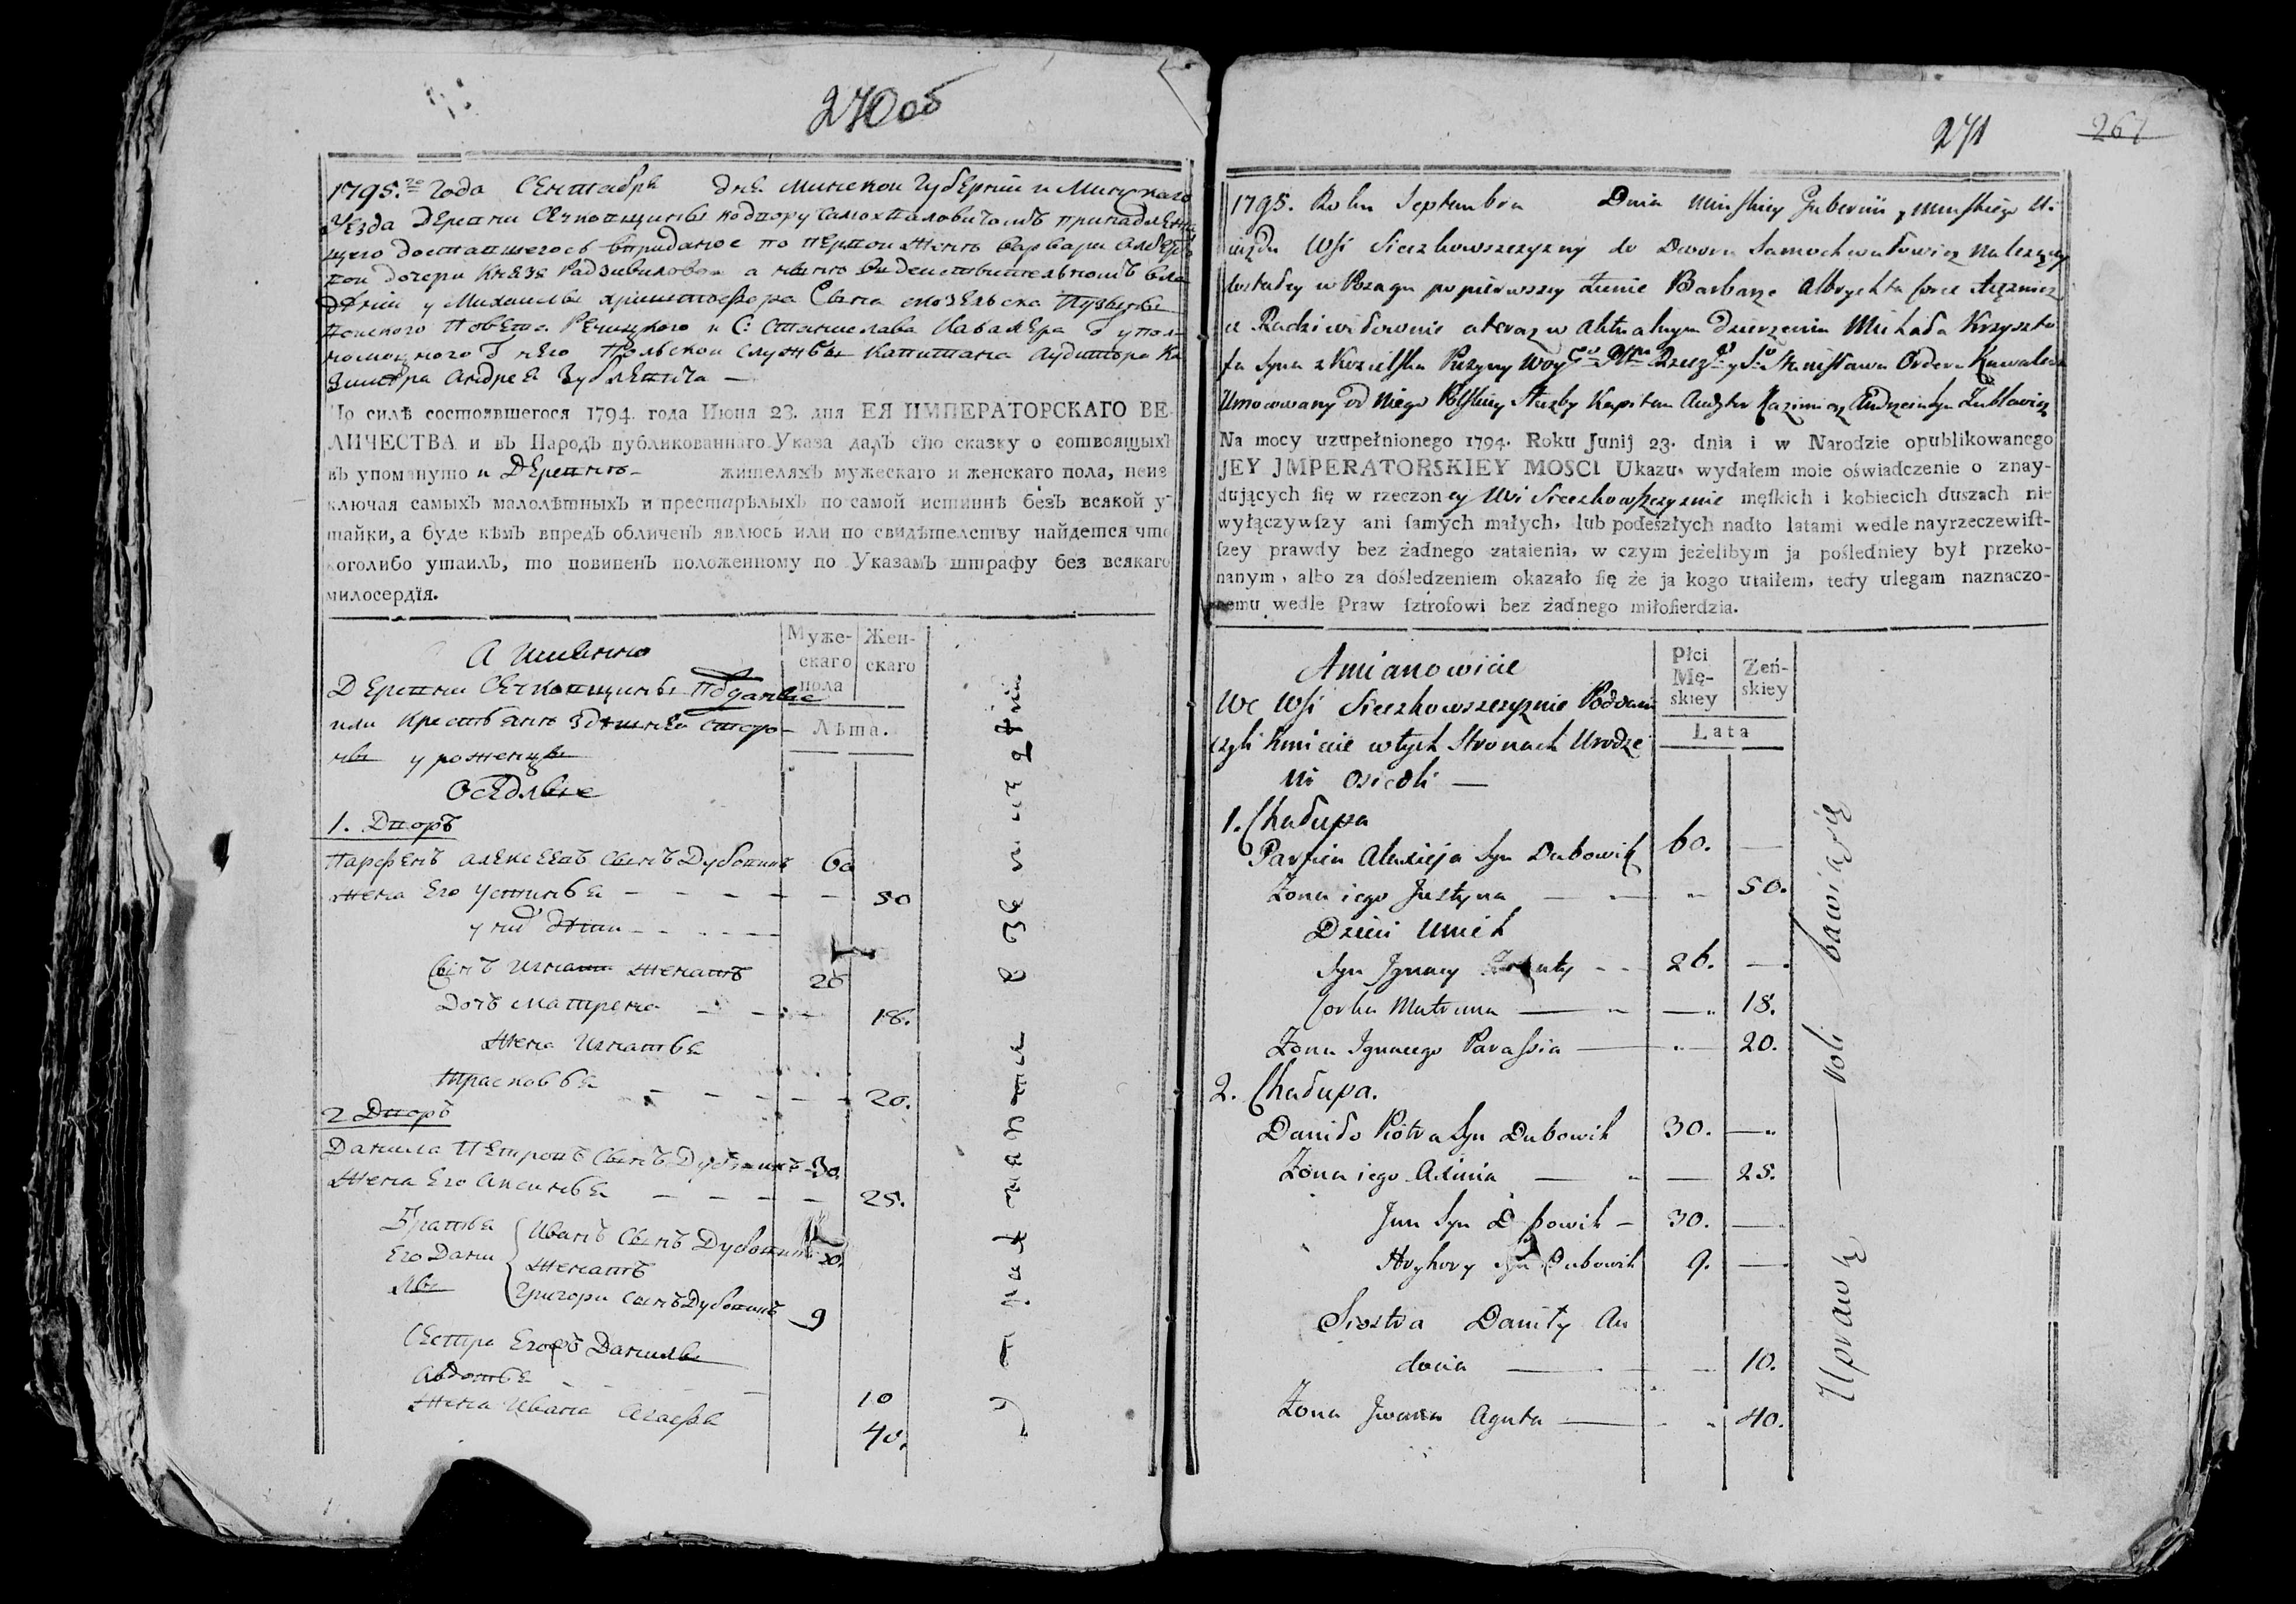 270об
1795.го Года Сентебре дне. Минской Губернии и Минского
Уезда Деревни Сечковщины кодвору Самохваловичомъ принадлежа
щего доставшегосъ впридание по первой жене Барбары Альбрех
вой дочери Князе Радзивилово а
дении у Михаила Христофора Сына
Повета Речицкого и С: Станислава Кавалера
него Польской службы Капитана Аудитора Ка
зимера Андрея
По силѣ состоявшегося 1794. года Июня 23. дня ЕЯ ИМПЕРАТОРСКАГО ВЕ-
ЛИЧЕСТВА и въ Народъ публикованнаго Указа далъ сїю сказку о состоящихъ
въ упомянуто и Деревню - жителяхъ мужескаго и женскаго пола, неиз
ключая самыхъ малолѣтныхъ и престарѣлыхъ по самой истиннѣ безъ всякой у-
тайки, а буде кѣмъ впредь обличенъ явлюсь или по свидѣтелству найдется что
коголибо утаилъ, то повиненъ положенному по Указамъ штрафу без всякаго
милосердїя.
А Имянно
Муже-
скаго
пола
Жен-
скаго
Лѣта.
Деревни Сечковщины Подданые
или Крестьяне здешней сторо-
ны уроженцы
Оседлые
1. Дворъ
Парфенъ Алексеевъ Сынъ Дубовикъ 60
Жена Его Устинья - - - - - 50
у них дети - - - - -
Сынъ Игнатъ Женатъ 26
Дочь Матрена - - - 18.
Жена Игнатья
Прасковья - - - - 20.
2 Дворъ
Данила Петровъ Сынъ Дубовикъ 30.
Жена Его Аксинья - - - - - 25.
Братья Его Данилы
Иванъ Сынъ Дубовикъ 30.
Женатъ
Григори Сынъ Дубовикъ 9
Сестра Его Данилы
Авдотья - - - 10
Жена Ивана Агафья 40.
271
267
1795. Roku Septembra Dnia Minskiey Gubernii y Minskiego U-
iazdu Wsi Sieczkowszczyzny do Dworu Samochwałowicz należącey
dostałey w Posagu po pierwszey Żenie Barbarze Albrychta Corce Xiężnicz
ce Radziwiłłownie a teraz w aktualnym dzierzeniu Michała Krzyszto
fa Syna z Kozielska Puzyny Woy Stanisława Ordera Kawalera
Umocowany od niego Polskiey Służby Kapitan Audytor Kazimierz Andrzeia Syn Zubłewicz
Na mocy uzupełnionego 1794. Roku Junij 23. dnia i w Narodzie opublikowanego
JEY JMPERATORSKIEY MOSCI Ukazu, wydałem moie oświadczenie o znay-
dujących ſię w rzeczoney Wsi Sieczkowszczyznie męſkich i kobiecich duszach nie
wyłączywſzy ani ſamych małych, lub podeszłych nadto latami wedle nayrzeczewiſt-
ſzey prawdy bez żadnego zataienia, w czym jeżelibym ja poſledniey był przeko-
nanym, albo za doſledzeniem okazało ſię że ja kogo utaiłem, tedy ulegam naznaczo-
nemu wedle Praw ſztrofowi bez żadnego miłoſierdzia.
Amianowicie
Płci
Mę-
skiey
Żeń-
skiey
Lata
We Wsi Sieczkowszczyznie Poddani
czyli Kmiecie w tych Stronach Urodze
ni osiedli —
1. Chałupa
Parfien Alexieja Syn Dubowik 60. —
Żona iego Justyna — 50.
Dzieci Unich
Syn Ignacy Żonaty - - 26. —
Corka Matruna — 18.
Żona Ignacego Parassia — 20.
2. Chałupa.
Daniło Piotra Syn Dubowik 30. —
Żona iego Axinia — 25.
Jwan Syn Dubowik - 30. —
Hryhory Syn Dubowik 9. —
Siostra Daniły Au
docia — 10.
Żona Jwana Agata — 40.
Uprawią — roli bawią się